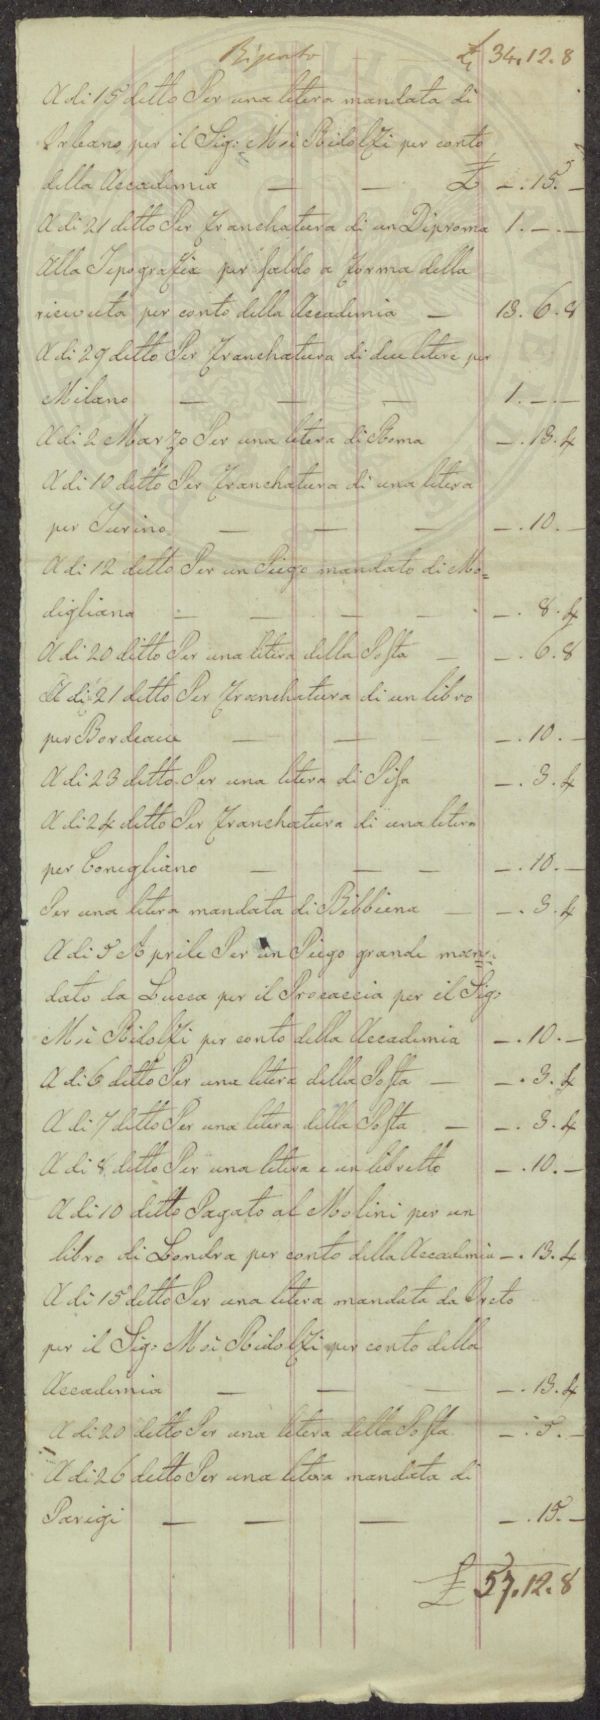 Riporto — £ 34.12.8
A di 15 detto Per una litera mandata di
Orleans per il Sig: Msè Ridolfi per conto
della Accademia — — £ –.15.–
A di 21 detto Per franchatura di un Diproma 1.–.–
Alla Tipografia per saldo a forma della
riceuuta per conto della Accademia — 13.6.8
A di 29 detto Per franchatura di due litere per
Milano — — — 1.–.–
A di 2 Marzo Per una litera di Roma –.13.4
A di 10 detto Per franchatura di una litera
per Turino — — — –.10.–
A di 12 detto Per un Piego mandato di Mo=
digliana — — — –.8.4
A di 20 ditto Per una litera della Posta — –.6.8
A di 21 detto Per franchatura di un libro
per Bordeaux — — — –.10.–
A di 23 detto Per una litera di Pisa –.3.4
A di 24 detto Per franchatura di una litera
per Conegliano — — — –.10.–
Per una litera mandata di Bibbiena — –.3.4
A di 5 Aprile Per un Piego grande man=
dato da Lucca per il Procaccia per il Sig:
Msè Ridolfi per conto della Accademia –.10.–
A di 6 detto Per una litera della Posta — –.3.4
A di 7 detto Per una litera della Posta — –.3.4
A di 8 detto Per una litera e un libretto –.10.–
A di 10 detto Pagato al Molini per un
libro di Londra per conto della Accademia –.13.4
A di 15 detto Per una litera mandata da Prato
per il Sig: Msè Ridolfi per conto della
Accademia — — — –.13.4
A di 20 detto Per una litera della Posta –.5.–
A di 26 detto Per una litera mandata di
Parigi — — — –.15.–
£ 57.12.8